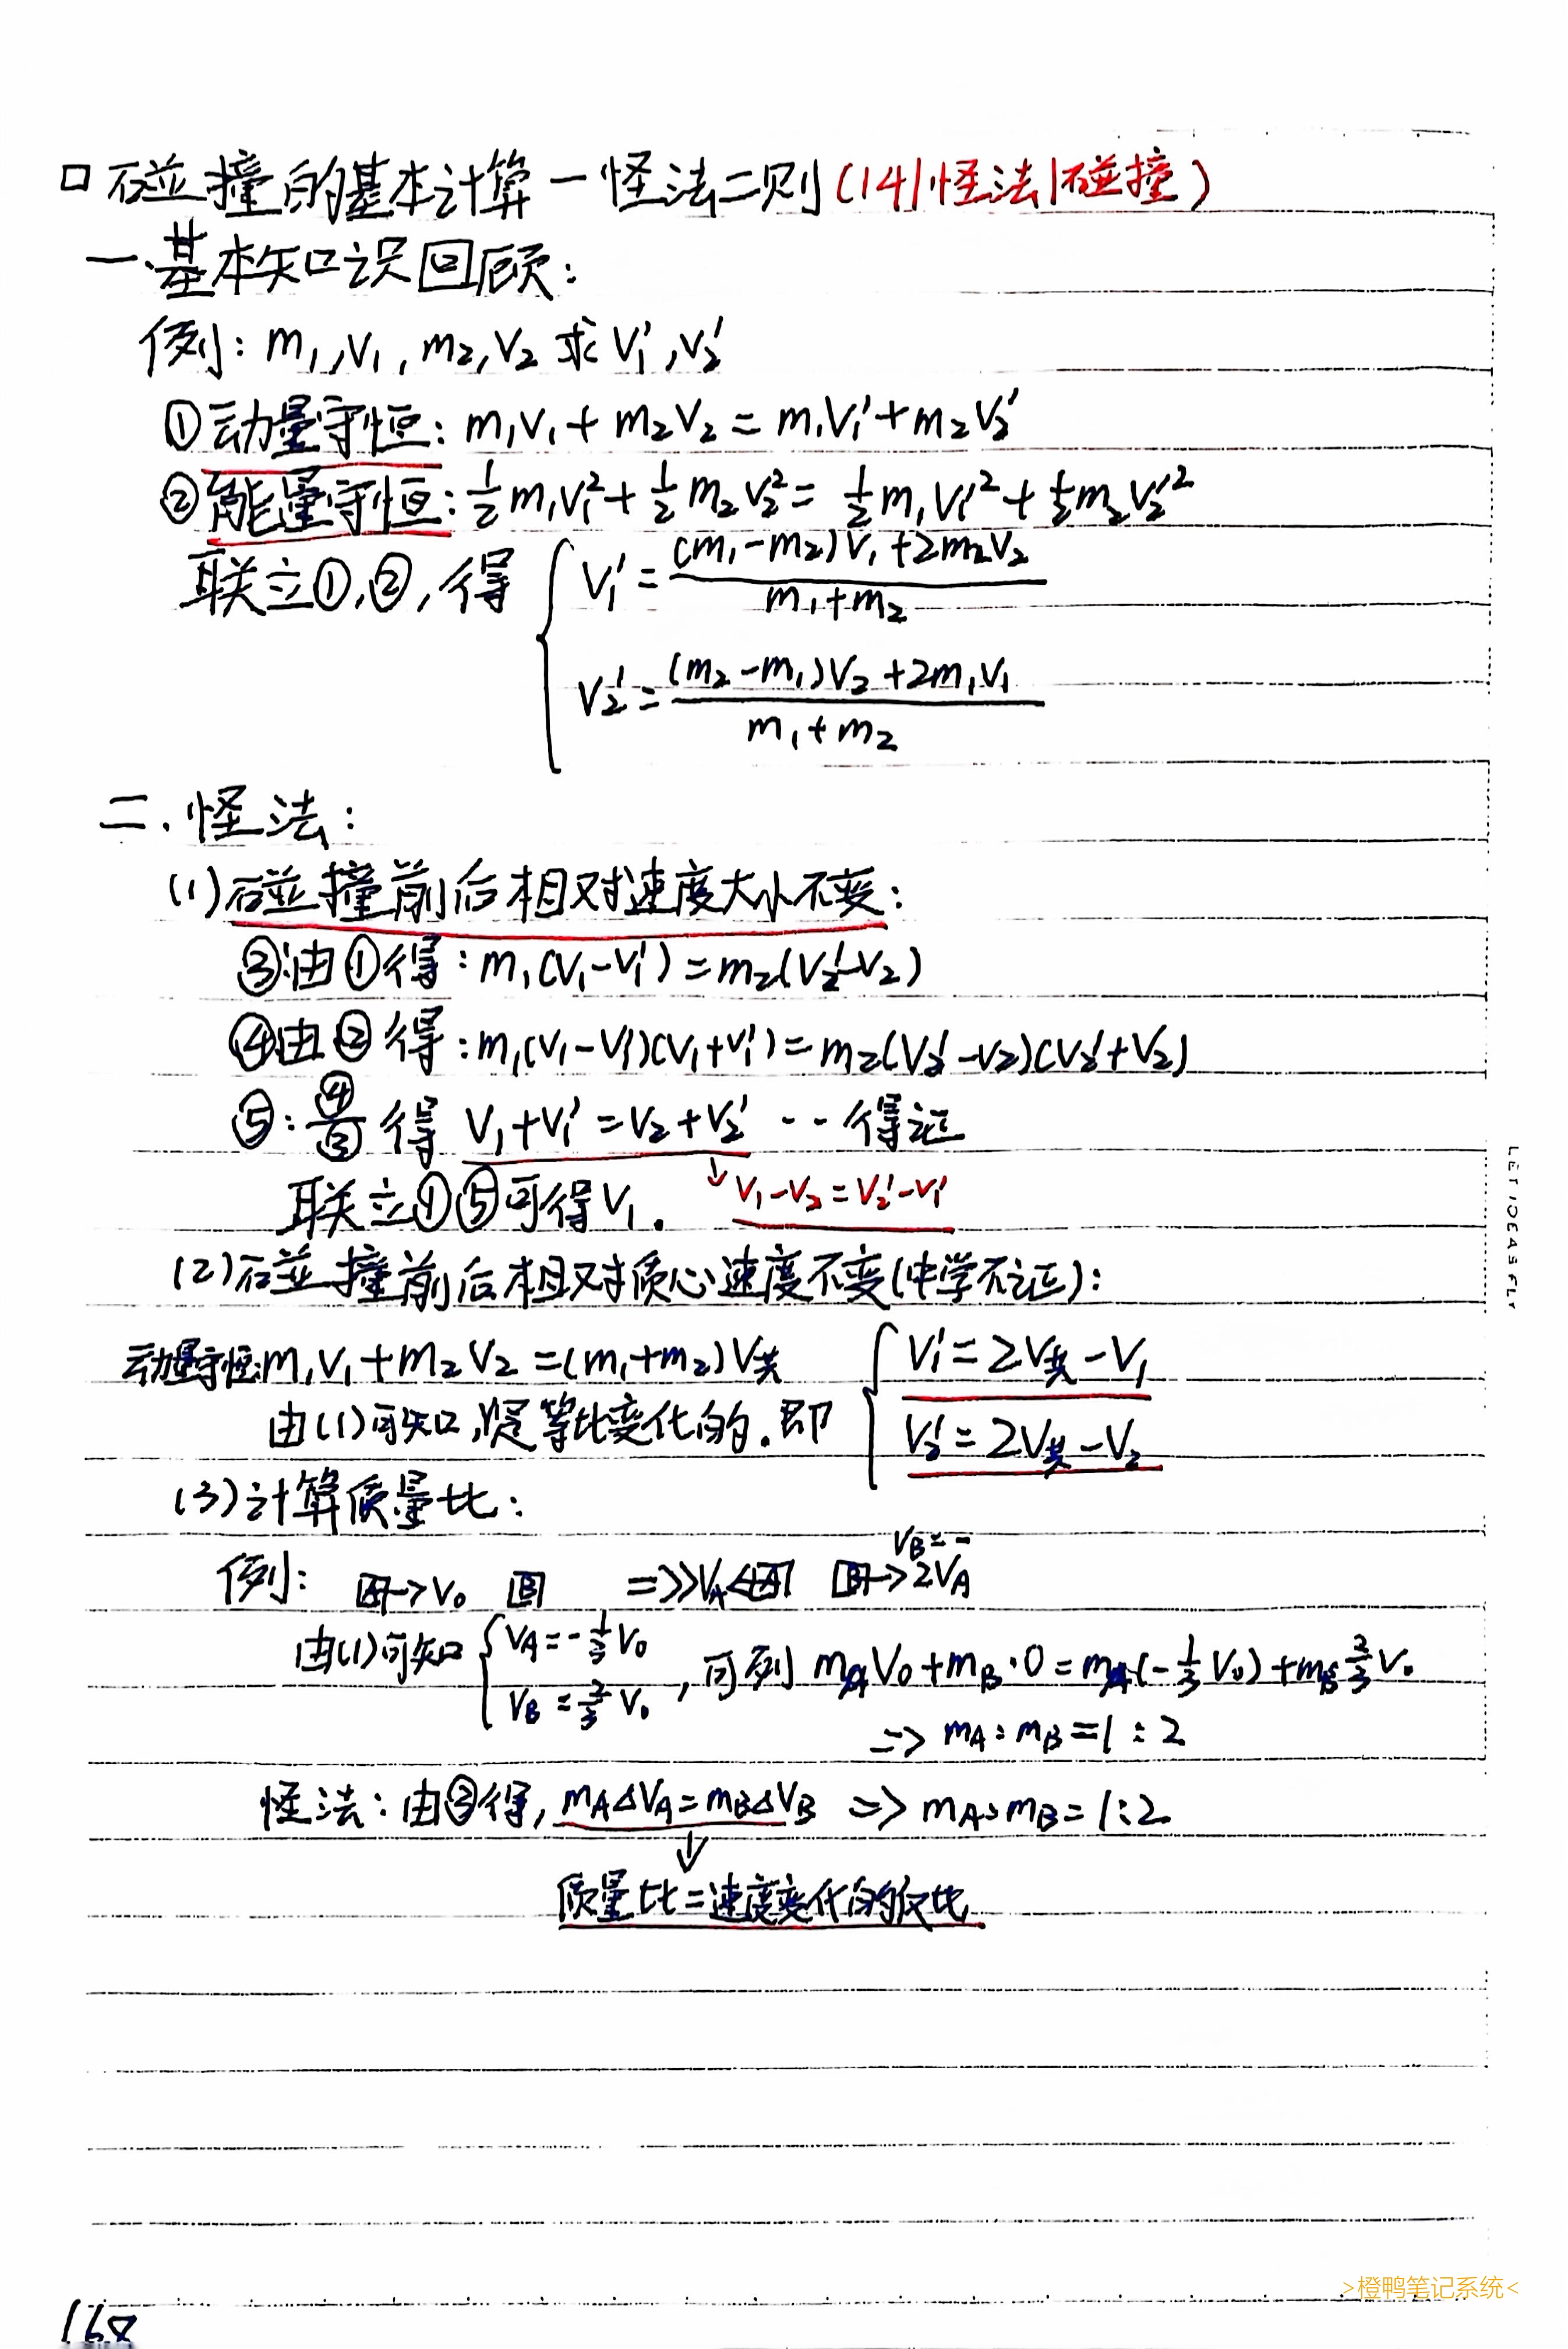 口碰撞的基本计算一怪法二则(14|怪法|碰撞)
一.基本知识回顾:
例: m₁,v₁,m₂,v₂ 求 v₁′,v₂′
①动量守恒: m₁v₁+m₂v₂=m₁v₁′+m₂v₂′
②能量守恒: ½m₁v₁²+½m₂v₂²=½m₁v₁′²+½m₂v₂′²
联立①,②,得 { v₁′=((m₁-m₂)v₁+2m₂v₂)/(m₁+m₂)
v₂′=((m₂-m₁)v₂+2m₁v₁)/(m₁+m₂)
二.怪法:
(1)碰撞前后相对速度大小不变:
③:由①得: m₁(v₁-v₁′)=m₂(v₂′-v₂)
④由②得: m₁(v₁-v₁′)(v₁+v₁′)=m₂(v₂′-v₂)(v₂′+v₂)
⑤: ④/③ 得 v₁+v₁′=v₂+v₂′ ‥得记
联立①⑤可得v₁. ↓v₁-v₂=v₂′-v₁′
(2)碰撞前后相对质心速度不变(中学不证):
动量守恒:m₁v₁+m₂v₂=(m₁+m₂)v共 { v₁′=2v共-v₁
由(1)可知,是等比变化的.即 v₂′=2v共-v₂
(3)计算质量比:
vB=-
例: A→v₀ B =>>vA←A B→2vA
由(1)可知 { vA=-⅓v₀
vB=⅔v₀ ,可列 mAv₀+mB·0=mA(-⅓v₀)+mB⅔v₀
=> mA:mB=1:2
怪法:由③得, mAΔvA=mBΔvB => mA:mB=1:2
↓
质量比=速度变化的反比
LET IDEAS FLY
>橙鸭笔记系统<
168